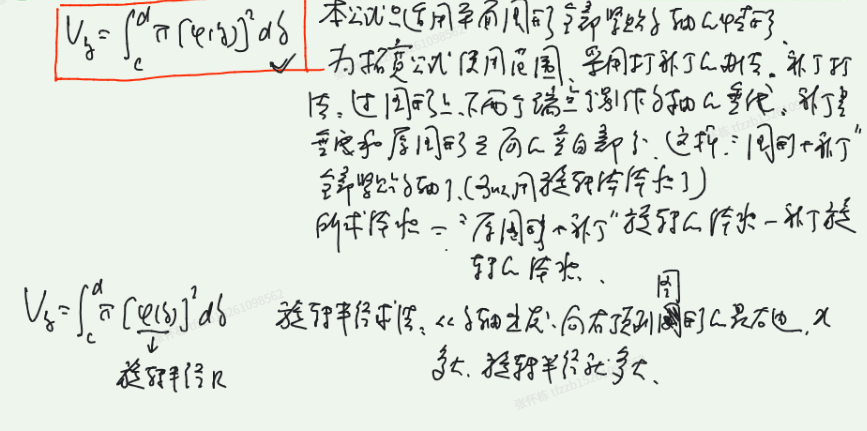 V_y = ∫_c^d π[φ(y)]² dy 本公式只适用平面图形全部紧贴y轴的情形
为拓宽公式使用范围，采用打补丁的办法。补丁打
法：过图形上、下两个端点分别作y轴的垂线，补丁是
垂线和原图形之间的空白部分，这样："图形+补丁"
全部紧贴y轴了，(可以用旋转体体积了)
所求体积 = "原图形+补丁"旋转的体积－补丁旋
转的体积、
V_y = ∫_c^d π[φ(y)]² dy 旋转半径求法：从y轴出发，向右顶到图形的最右边，x
旋转半径R 多大，旋转半径就多大、